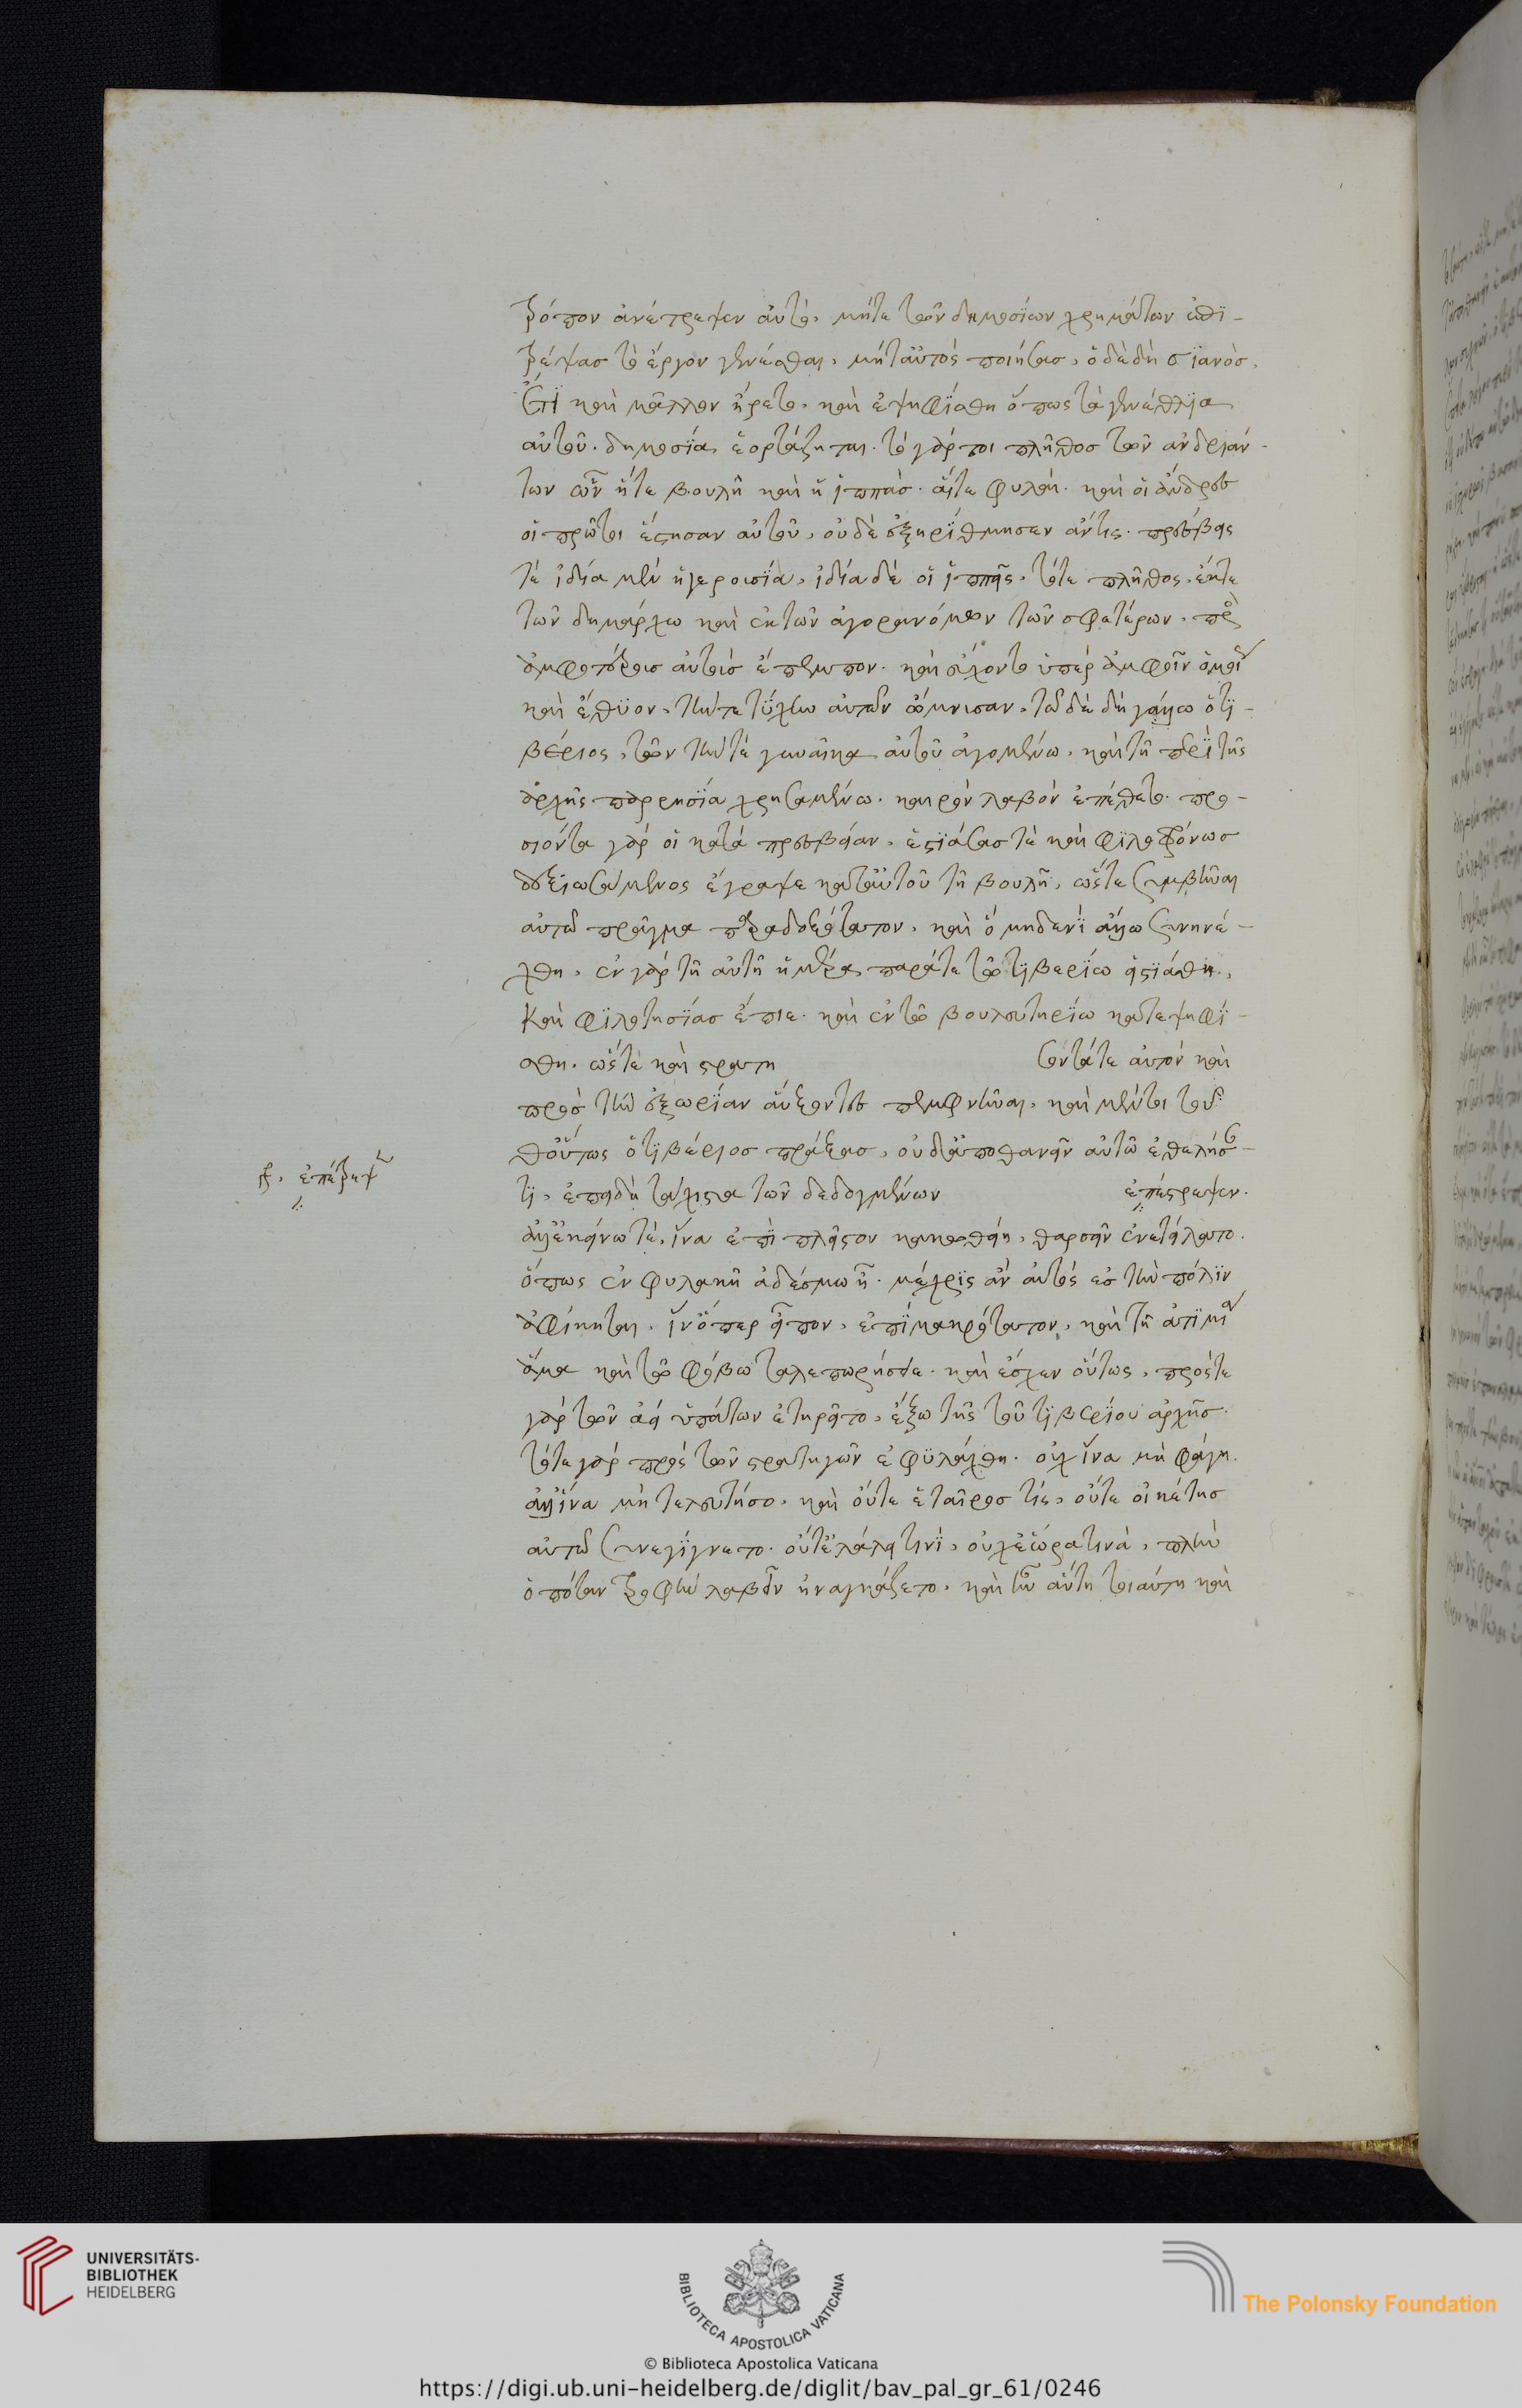 τρόπον ἀνέτρεψεν αὐτό, μήτε τῶν δημοσίων χρημάτων ἐπι-
τρέψας τὸ ἔργον γενέσθαι, μήτ' αὐτὸς ποιήσας. ὁ δὲ δὴ σϊανὸς
ἔτι καὶ μᾶλλον ἤρετο. καὶ ἐψηφίσθη ὅπως τὰ γενέθλϊα
αὐτοῦ δημοσίᾳ ἑορτάζηται. τὸ γάρ τοι πλῆθος τῶν ἀνδριάν-
των ὧν ἥτε βουλὴ καὶ ἡ ἱππάς. αἵτε φυλαὶ. καὶ οἱ ἄνδρες
οἱ πρῶτοι ἔστησαν αὐτοῦ, οὐδὲ ἐξηρίθμησεν ἄν τις. πρέσβεις
τὲ ἰδία μὲν ἡ γερουσία, ἰδία δὲ οἱ ἱππεῖς. τότε πλῆθος. ἔκ τε
τῶν δημάρχω καὶ ἐκ τῶν ἀγορανόμων τῶν σφετέρων. πρὸς
ἀμφοτέρους αὐτοὺς ἔπεμπον. καὶ εὔχοντο ὑπὲρ ἀμφοῖν ὁμοίως
καὶ ἔθϋον. τήν τε τύχην αὐτῶν ὤμνυσαν. τῶ δὲ δὴ γάλλω ὁ τι-
βέριος, τῶ τήν τε γυναῖκα αὐτοῦ ἀγομένω. καὶ τῆ περὶ τῆς
ἀρχῆς παρρησία χρησαμένω. καιρὸν λαβὼν ἐπέθετο. προ-
σιόντα γάρ οἱ κατὰ πρεσβείαν. ἑστιάσας τὲ καὶ φϊλοφρόνως
δεξιωσάμενος ἔγραψε κατ' αὐτοῦ τῆ βουλῆ, ὥστε συμβῆναι
αὐτῶ πρᾶγμα παραδοξότατον. καὶ ὃ μηδενὶ ἄλλω συνηνέ-
χθη. ἐν γὰρ τῆ αὐτῆ ἡμέρα παρά τε τῶ τιβερίω εἱστιάθη.
καὶ φϊλοτησίας ἔπιε. καὶ ἐν τῶ βουλευτηρίω κατεψηφί-
σθη. ὥστε καὶ στρατη σοντά τε αὐτὸν καὶ
πρὸς τὴν ἐξωρίαν ἄξοντες πεμφθῆναι. καὶ μέντοι τοῦ-
θ' οὕτως ὁ τιβέριος πράξας, οὐδ' ἀποθανεῖν αὐτῶ ἐθελήσαν-
τι, ἐπειδὴ τάχιστα τῶν δεδογμένων ἐπέστρεψεν.
ἀλλ' ἐκείνω τὲ, ἵνα ἐπὶ πλεῖστον κακωθείη, θαρσεῖν ἐνετείλατο.
ὅπως ἐν φυλακῆ ἀδέσμω ἦ. μέχρϊς ἂν αὐτὸς ἐς τὴν πόλϊν
ἀφίκηται. ἵν' ὅπερ εἶπον, ἐπὶ μακρότατον. καὶ τῆ ἀτιμία
ἅμα καὶ τῶ φόβω ταλεπωρήσειε. καὶ ἔσχεν οὕτως. πρός τε
γὰρ τῶν ἀεὶ ὑπάτων ἐτηρεῖτο, ἔξω τῆς τοῦ τιβερίου ἀρχῆς.
τότε γὰρ πρὸς τῶν στρατηγῶν ἐφϋλάχθη. οὐχ ἵνα μὴ φύγη.
ἀλλ' ἵνα μὴ τελευτήση. καὶ οὔτε ἑταῖρος τίς, οὔτε οἰκέτης
αὐτῶ συνεγίγνετο. οὔτ' ἐλάλει τινὶ, οὐχ' ἑώρα τινὰ, πλὴν
ὁπόταν τροφὴν λαβεῖν ἠναγκάζετο. καὶ ἦν αὕτη τοιαύτη καὶ
ἐπέτρεψ
UNIVERSITÄTS-
BIBLIOTHEK
HEIDELBERG
BIBLIOTECA APOSTOLICA VATICANA
The Polonsky Foundation
© Biblioteca Apostolica Vaticana
https://digi.ub.uni-heidelberg.de/diglit/bav_pal_gr_61/0246